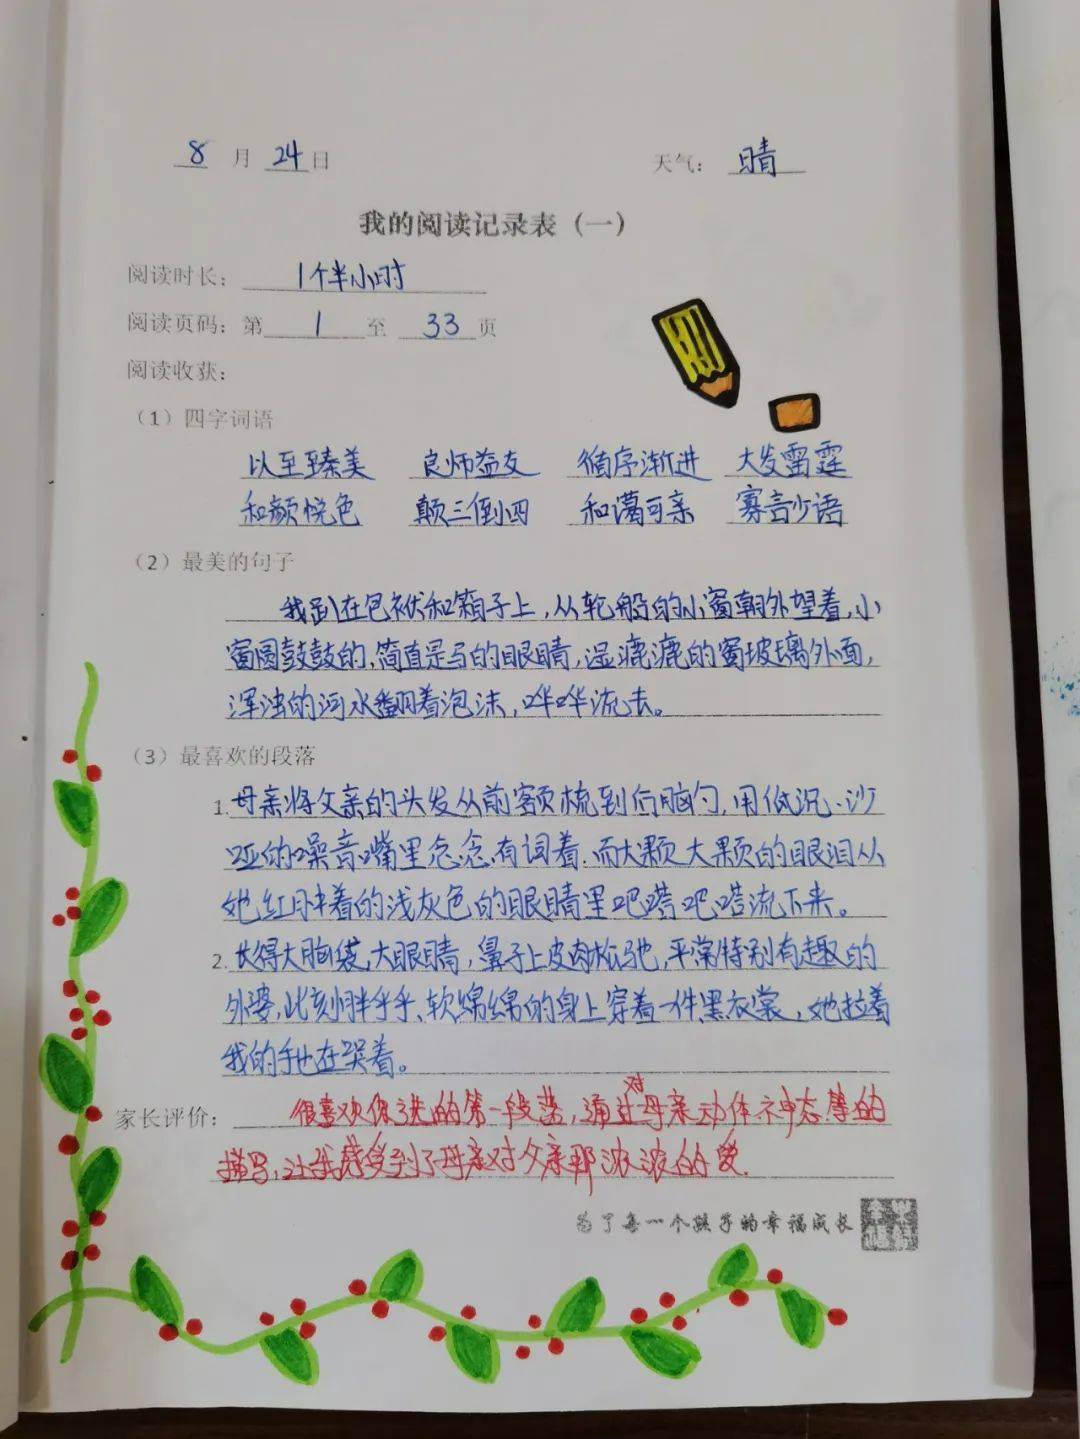 8月24日 天气：晴
我的阅读记录表（一）
阅读时长：1个半小时
阅读页码：第1至33页
阅读收获：
（1）四字词语
以至臻美 良师益友 循序渐进 大发雷霆
和颜悦色 颠三倒四 和蔼可亲 寡言少语
（2）最美的句子
我趴在包袱和箱子上，从轮船的小窗朝外望着，小
窗圆鼓鼓的，简直是马的眼睛，湿漉漉的窗玻璃外面，
浑浊的河水翻着泡沫，哗哗流去。
（3）最喜欢的段落
1.母亲将父亲的头发从前额梳到后脑勺，用低沉、沙
哑的噪音嘴里念念有词着。而大颗大颗的眼泪从
她红肿着的浅灰色的眼睛里吧嗒吧嗒流下来。
2.长得大脑袋，大眼睛，鼻子上皮肉松驰，平常特别有趣的
外婆，此刻胖乎乎、软绵绵的身上穿着一件黑衣裳，她拉着
我的手也在哭着。
家长评价：很喜欢你选的第一段落，通过对母亲动作神态等的
描写，让我感受到了母亲对父亲那浓浓的爱.
为了每一个孩子的幸福成长